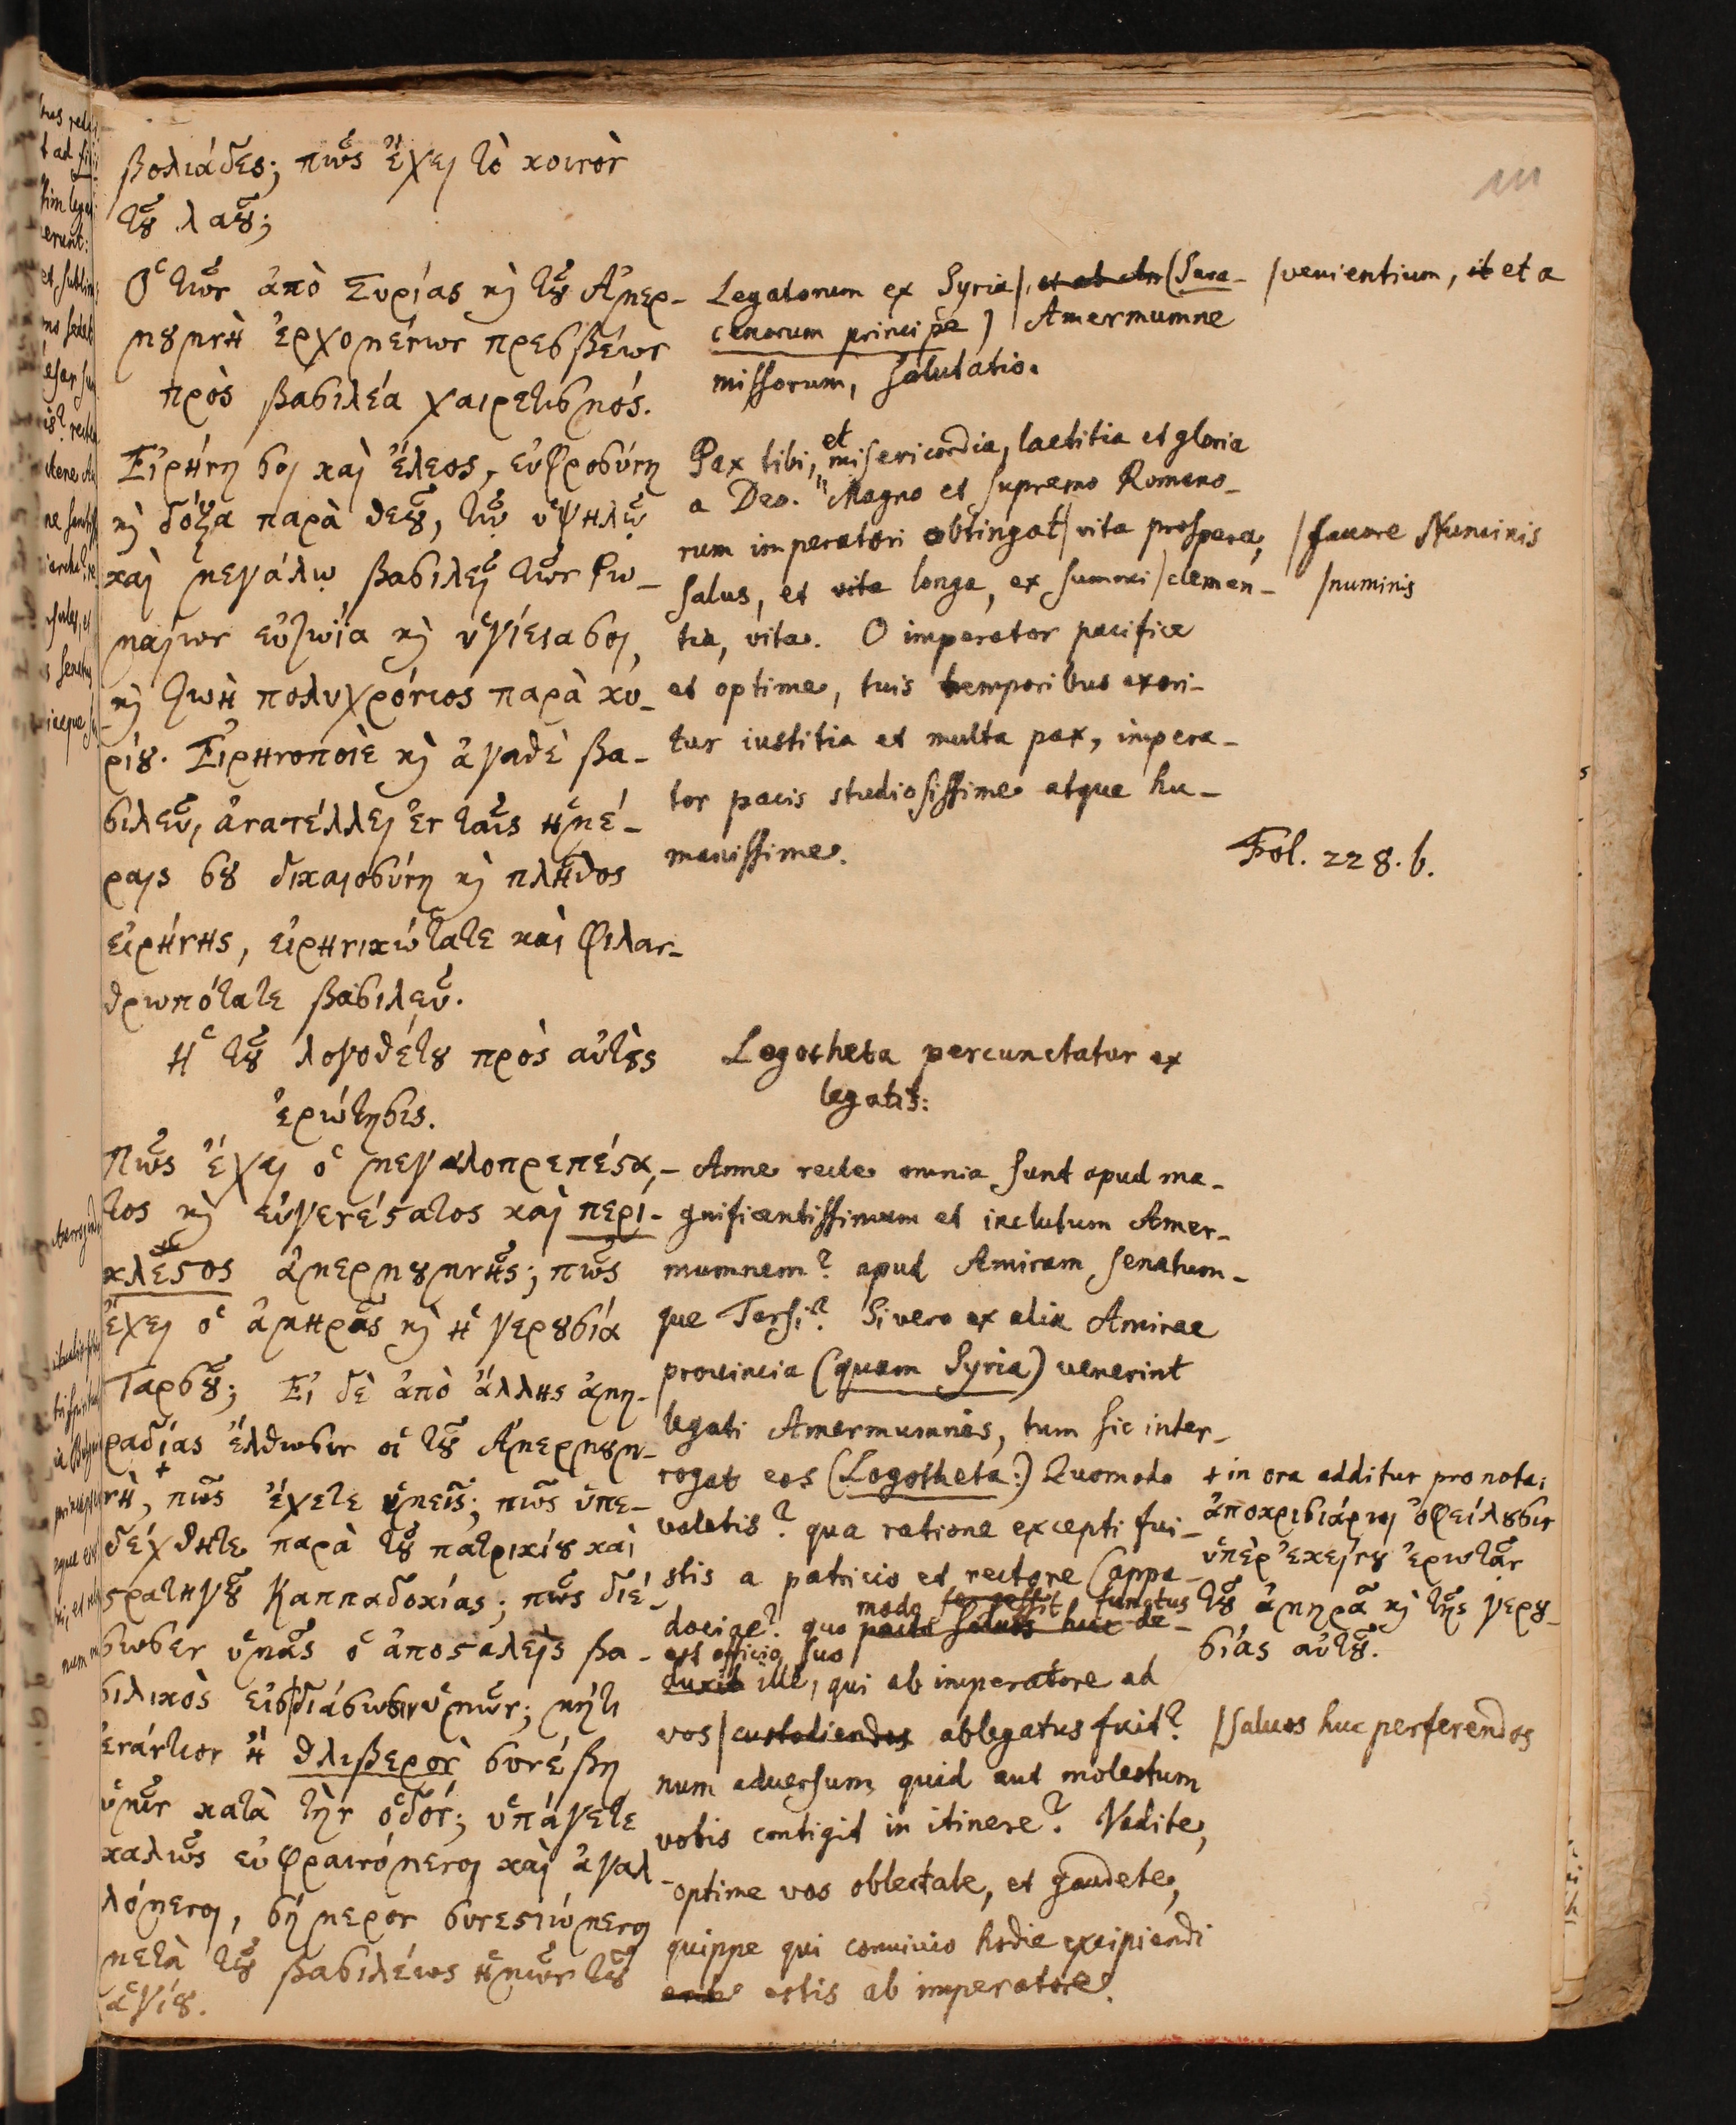 βολιάδες; πῶς ἔχει τὸ κοινὸν
τοῦ λαοῦ;
Ὁ τῶν ἀπὸ Συρίας καὶ τοῦ Ἀμερ-
μουμνὴ ἐρχομένων πρεσβέων
πρὸς βασιλέα χαιρετισμός.
Εἰρήνη σοι καὶ ἔλεος, εὐφροσύνη
καὶ δόξα παρὰ θεοῦ, τῷ ὑψηλῷ
καὶ μεγάλῳ βασιλεῖ τῶν Ῥω-
μαίων εὐζωία καὶ ὑγίεια σοι,
καὶ ζωὴ πολυχρόνιος παρὰ κυ-
ρίου. Εἰρηνοποιὲ καὶ ἀγαθὲ βα-
σιλεῦ, ἀνατέλλει ἐν ταῖς ἡμέ-
ραις σου δικαιοσύνη καὶ πλῆθος
εἰρήνης, εἰρηνικώτατε καὶ φιλαν-
θρωπότατε βασιλεῦ.
Ἡ τοῦ λογοθέτου πρὸς αὐτοὺς
ἐρώτησις.
Πῶς ἔχει ὁ μεγαλοπρεπέστα-
τος καὶ εὐγενέστατος καὶ περί-
κλεστος ἀμερμουμνῆς; πῶς
ἔχει ὁ ἀμηρᾶς καὶ ἡ γερουσία
Ταρσοῦ; Εἰ δὲ ἀπὸ ἄλλης ἀμη-
ραδίας ἔλθωσιν οἱ τοῦ Ἀμερμουμ-
νὴ, + πῶς ἔχετε ὑμεῖς; πῶς ὑπε-
δέχθητε παρὰ τοῦ πατρικίου καὶ
στρατηγοῦ Καππαδοκίας; πῶς διέ-
σωσεν ὑμᾶς ὁ ἀποσταλεὶς βα-
σιλικὸς εἰς διάσωσιν ὑμῶν; μήτι
ἐνάντιον ἢ θλιβερὸν συνέβη
ὑμῖν κατὰ τὴν ὁδόν; ὑπάγετε
καλῶς εὐφραινόμενοι καὶ ἀγαλ-
λόμενοι, σήμερον συνεστιώμενοι
μετὰ τοῦ βασιλέως ἡμῶν τοῦ
ἁγίου.
Legatorum ex Syria |, et ab (Sara- | venientium, it et a
cenorum principe) Amermumne
missorum, salutatio.
Pax tibi, et misericordia, laetitia et gloria
a Deo. Magno et supremo Romano-
rum imperatori obtingat | vita prospera, | favore Numinis
salus, et vita longa, ex summi | clemen- | numinis
tia, vita. O imperator pacifice
et optime, tuis temporibus exori-
tur iustitia et multa pax, impera-
tor pacis studiosissime atque hu-
manissime.
Fol. 228. b.
Logotheta percunctatur ex
legatis:
Anne recte omnia sunt apud ma-
gnificentissimum et inclutum Amer-
mumnem? apud Amiram senatum-
que Tarsi? Si vero ex alia Amirae
provincia (quam Syria) venerint
legati Amermumnes, tum sic inter-
rogat eos (Logotheta:) Quomodo
valetis? qua ratione excepti fui-
stis a patricio et rectore Cappa-
dociae? quo modo functus
pacto salvos huc de-
est officio suo
duxit ille, qui ab imperatore ad
vos | custodiendos ablegatus fuit? | salvos huc perferendos
num adversum quid aut molestum
vobis contigit in itinere? Vadite,
optime vos oblectate, et gaudete,
quippe qui convivio hodie excipiendi
estis ab imperatore.
+ in ora additur pro nota:
ἀποκρισιάριοι ὀφείλουσιν
ὑπὲρ ἐκείνου ἐρωτᾶν
τοῦ ἀμηρᾶ καὶ τῆς γερου-
σίας αὐτοῦ.